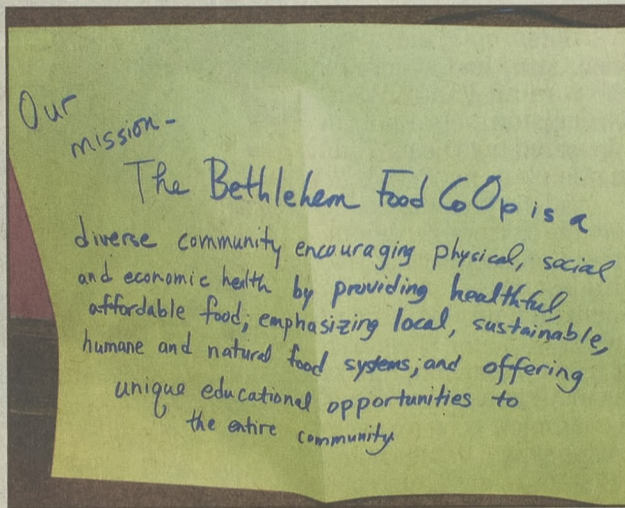 Our
mission-
The Bethlehem Food CoOp is a
diverse community encouraging physical, social
and economic health by providing healthful,
affordable food; emphasizing local, sustainable,
humane and natural food systems; and offering
unique educational opportunities to
the entire community.